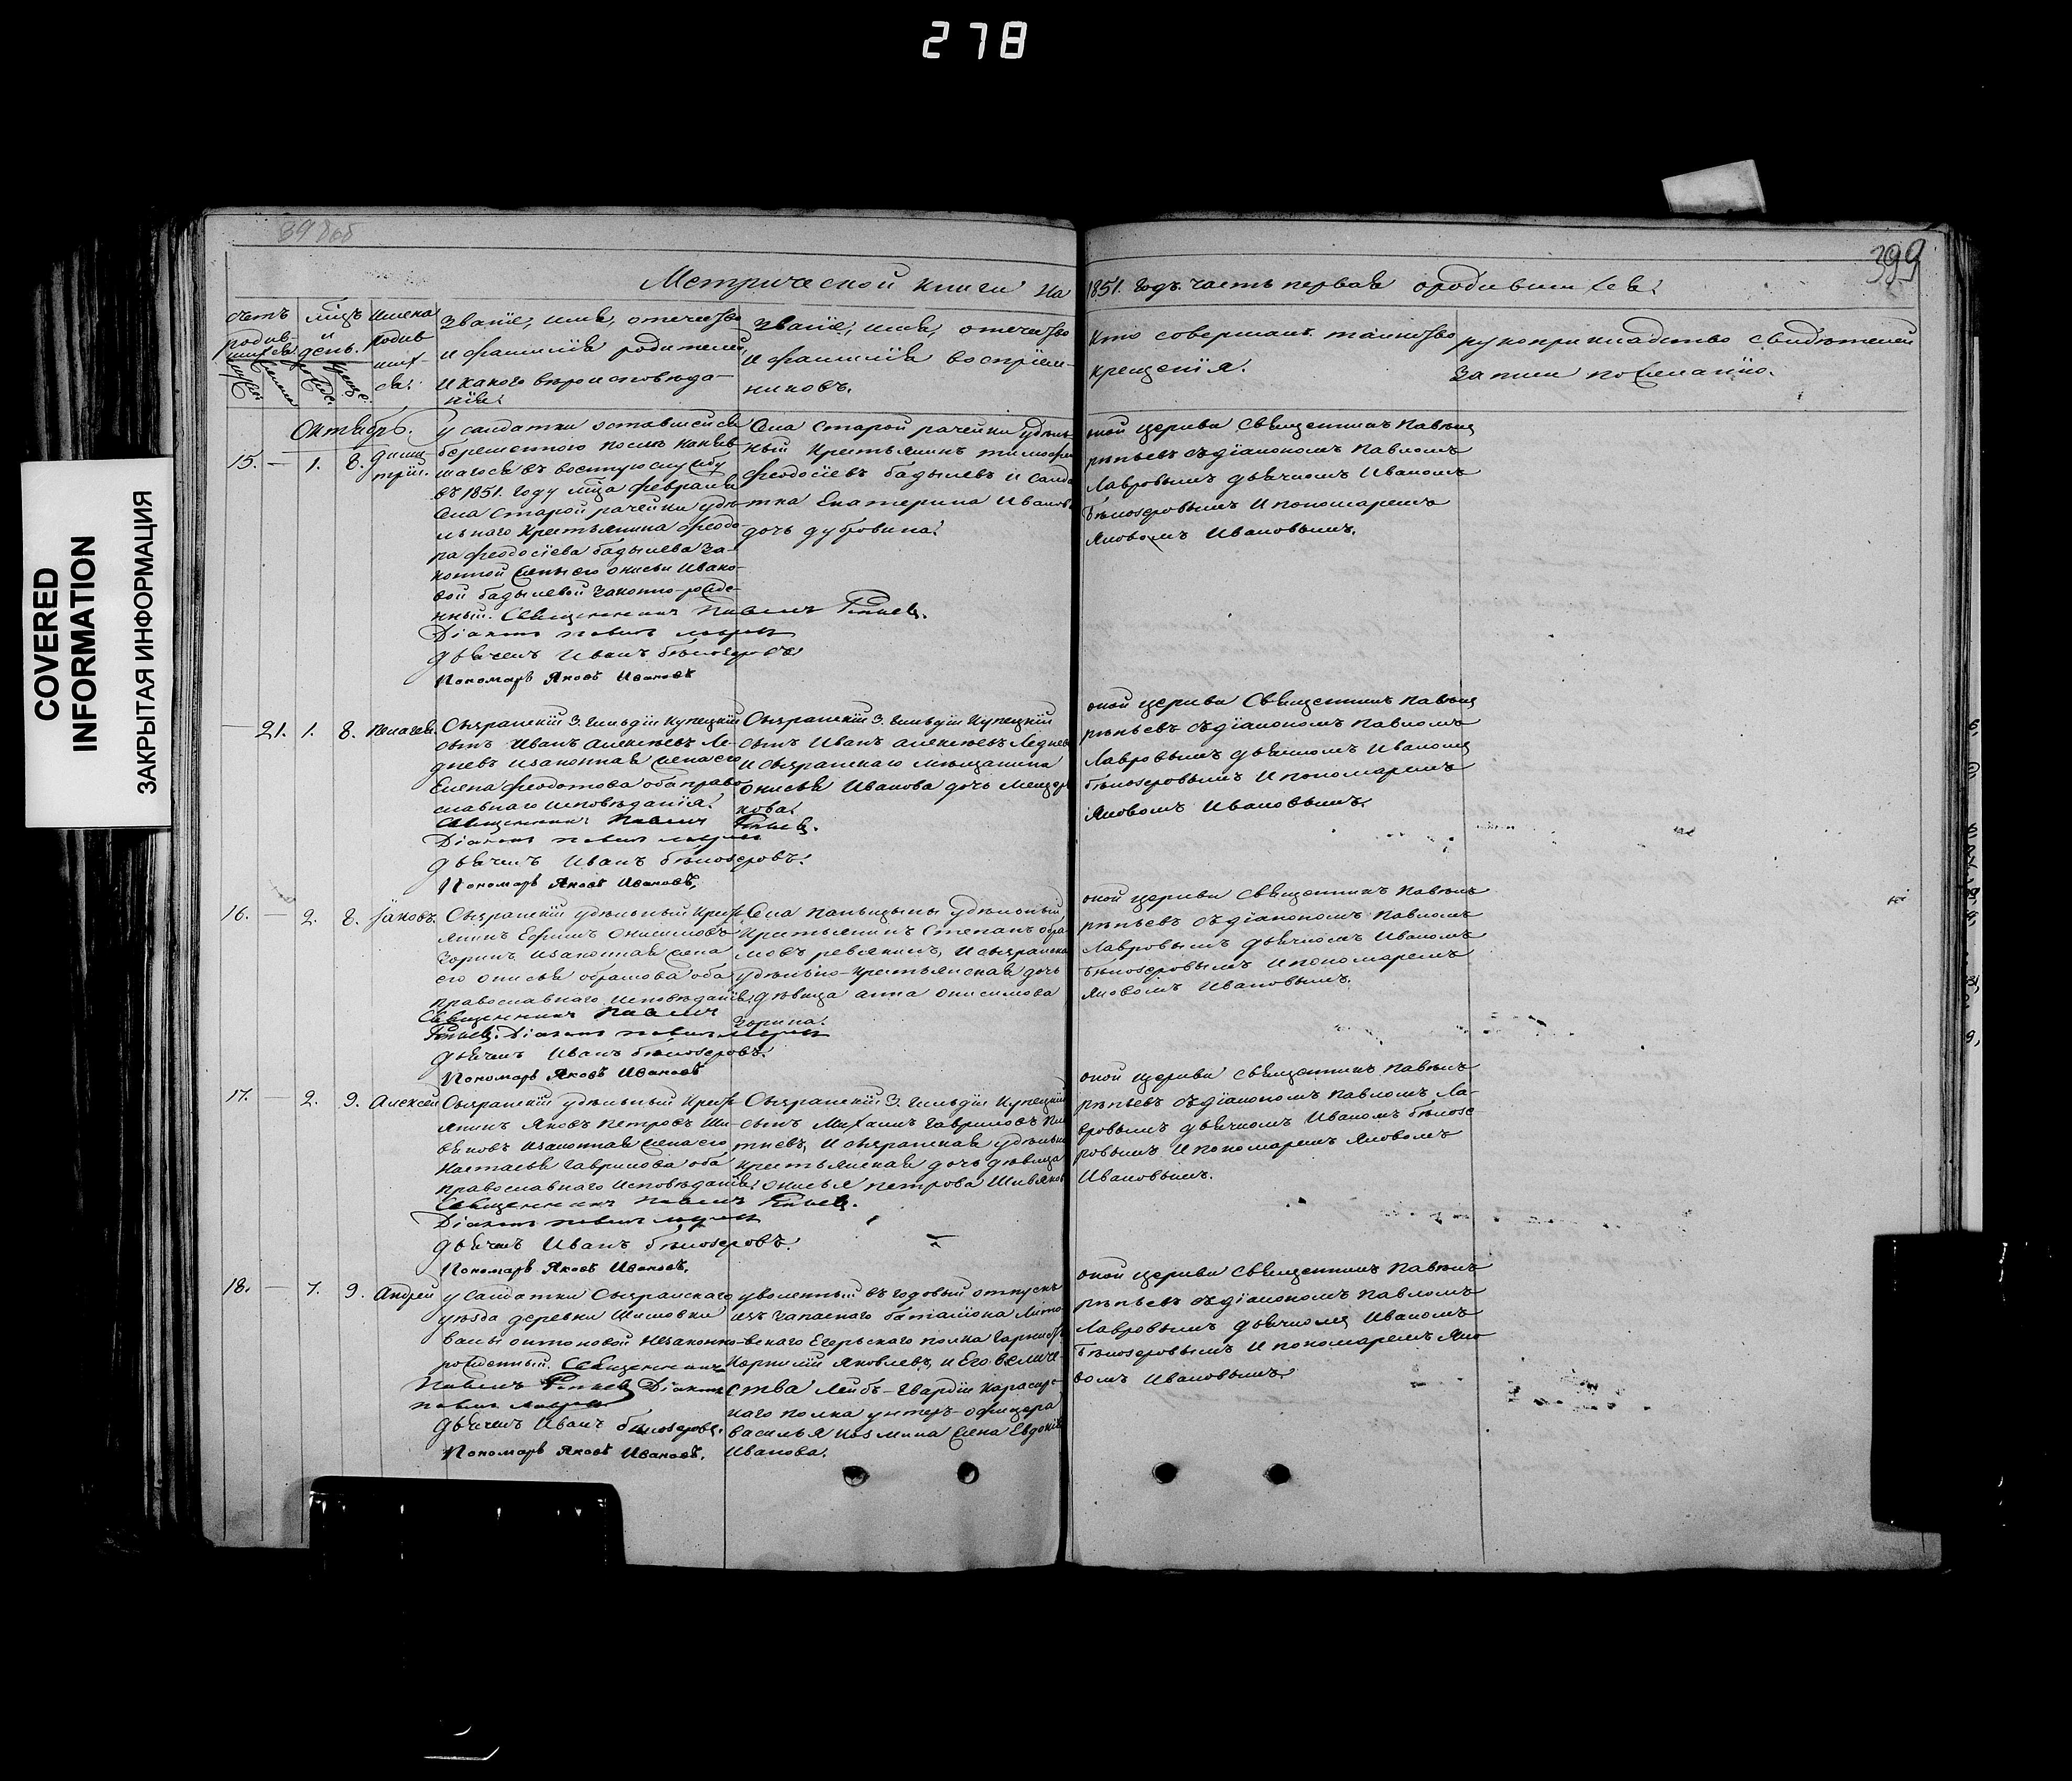 278
COVERED
INFORMATION
ЗАКРЫТАЯ ИНФОРМАЦИЯ
399
Метрической книги на 1851. годъ. часть первая о родившихся.
Счетъ
родив-
шихся
мѣцъ
и
день.
имена
родив
ших
ся.
Званіе, имя, отечество
и фамилія родителей,
и какого вѣроисповѣда-
нія.
Званіе, имя, отечество
и фамилія воспріем-
никовъ.
Кто совершалъ таинство
крещенія.
рукоприкладство свидѣтелей
записи по желанію.
Октябрь.
15. — 1. 8.
Дими
трій.
у салдатки оставшейся
беременною послѣ
въ военную службу
въ 1851. году мѣца февраля
Села Старой рачейки удѣ
льнаго крестьянина Феодо
ра Феодосіева бадылева за-
конной жены его Онисьи Ивано-
вой бадылевой законно-рожде-
нный. Священникъ Павелъ
Діаконъ Павелъ Лавровъ
дьячекъ Иванъ бѣлозеровъ.
Пономарь Яковъ Ивановъ
Села Старой рачейки удѣль
ный крестьянинъ тимофей
Феодосіевъ бадылевъ и салда
тка Екатерина Иванова
дочь дубровина.
оной церкви Священникъ Павелъ
рѣпьевъ съ діакономъ Павломъ
Лавровымъ дьячкомъ Иваномъ
бѣлозеровымъ и пономаремъ
Яковомъ Ивановымъ.
— 21. 1. 8. Пелагея.
Сызранскій 3. гильдіи купецкій
сынъ Иванъ Алексѣевъ Ле-
дневъ и законная жена его
Елена Феодотова оба право
славнаго исповѣданія.
Священникъ Павелъ
Діаконъ Павелъ Лавровъ
дьячекъ Иванъ бѣлозеровъ.
Пономарь Яковъ Ивановъ,
Сызранскій 3. гильдіи купецкій
сынъ Иванъ Алексѣевъ Леднев
и сызранскаго мѣщанина
Онисья Иванова дочь
кова.
оной церкви Священникъ Павелъ
рѣпьевъ съ діакономъ Павломъ
Лавровымъ дьячкомъ Иваномъ
бѣлозеровымъ и пономаремъ
Яковомъ Ивановымъ.
16. — 2. 8. Іаковъ.
Сызранскій удѣльный крест
янинъ Ефимъ Онисимовъ
Горинъ, и законная жена
его Онисья Абрамова оба
православнаго исповѣданія.
Священникъ Павелъ
Діаконъ Павелъ Лавровъ
дьячекъ Иванъ бѣлозеровъ.
Пономарь Яковъ Ивановъ
Села Паньшины удѣльный
крестьянинъ Степанъ Абра
мовъ ревякинъ, и сызранска
удѣльно-крестьянская дочь
дѣвица анна Онисимова
Горина.
оной церкви Священникъ Павелъ
рѣпьевъ съ діакономъ Павломъ
Лавровымъ дьячкомъ Иваномъ
бѣлозеровымъ и пономаремъ
Яковомъ Ивановымъ.
17. — 2. 9. Алексей
Сызранскій удѣльный крест
янинъ Яковъ Петровъ Ши-
вяковъ и законная жена его
Настасья Гаврилова оба
православнаго исповѣданія.
Священникъ Павелъ
Діаконъ Павелъ Лавровъ
дьячекъ Иванъ бѣлозеровъ.
Пономарь Яковъ Ивановъ.
Сызранскій 3. гильдіи купецкій
сынъ Михаилъ Гавриловъ
и сызранская удѣльно
крестьянская дочь дѣвица
Онисья Петрова Шивяков
оной церкви Священникъ Павелъ
рѣпьевъ съ діакономъ Павломъ Ла-
вровымъ дьячкомъ Иваномъ бѣлозе
ровымъ и пономаремъ Яковомъ
Ивановымъ.
18. — 7. 9. Андрей
у салдатки Сызранскаго
уѣзда деревни
незаконно-
рожденный. Священникъ
Павелъ Діаконъ
Павелъ Лавровъ
дьячекъ Иванъ бѣлозеровъ.
Пономарь Яковъ Ивановъ.
уволенный въ годовый отпускъ
изъ запаснаго баталіона Лито
вскаго Егерьскаго полка
Корнилій Яковлевъ, и Его величе-
ства Лейбъ-Гвардіи Карасир-
наго полка унтеръ-офицера
Василья Козмина жена Евдокія
Иванова.
оной церкви Священникъ Павелъ
рѣпьевъ съ діакономъ Павломъ
Лавровымъ дьячкомъ Иваномъ
бѣлозеровымъ и пономаремъ Яко
вомъ Ивановымъ.